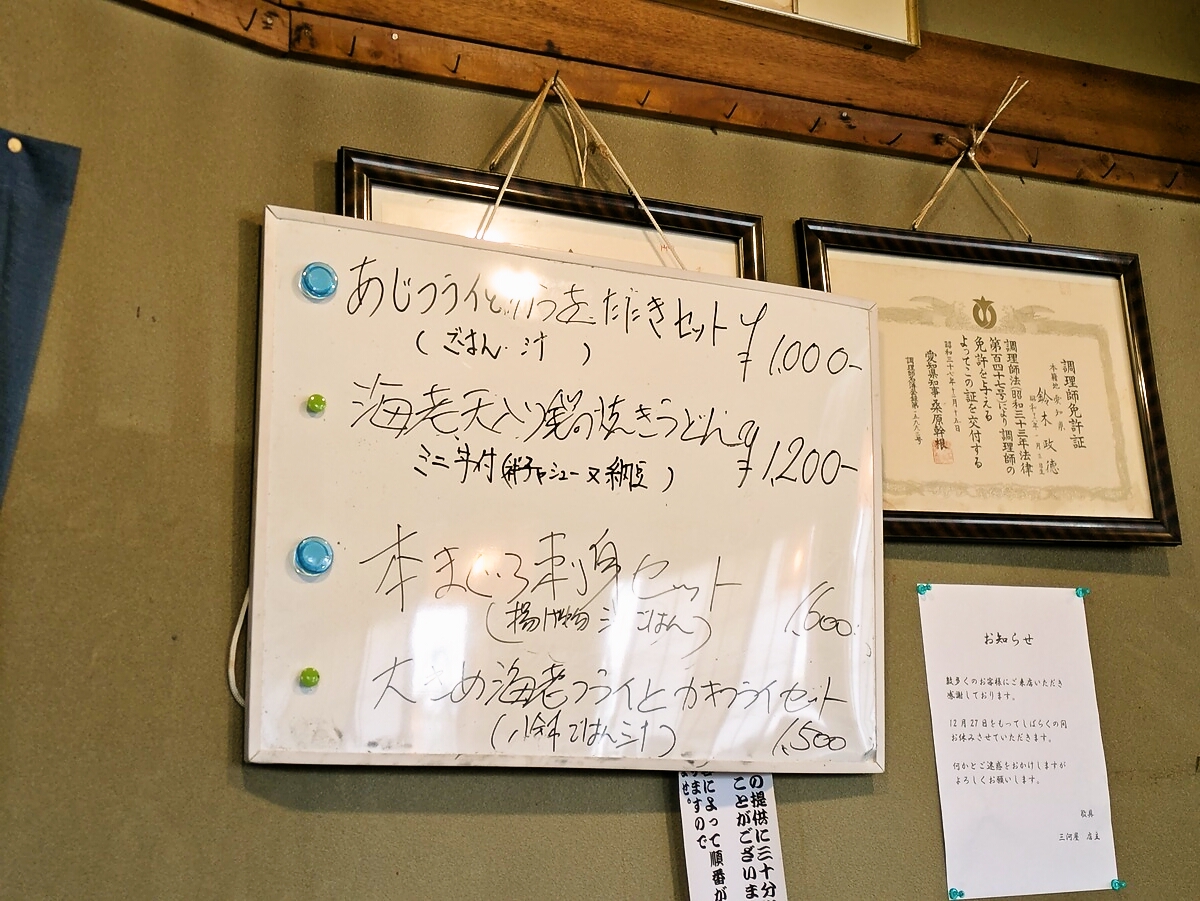 あじフライとかつをたたきセット ¥1,000-
(ごはん・汁)
海老天入り 焼きうどん ¥1,200-
ミニ丼付
本まぐろ刺身セット
(揚げ物 汁 ごはん) 1,600
大きめ海老フライとカキフライセット
(小鉢 ごはん 汁) 1,500
調理師免許証
本籍地 愛知県
鈴木政徳
調理師法(昭和三十三年法律
第百四十七号)により調理師の
免許を与える
よってこの証を交付する
昭和三十七年十二月十五日
愛知県知事 桑原幹根
お知らせ
数多くのお客様にご来店いただき
感謝しております。
12月27日をもってしばらくの間
お休みさせていただきます。
何かとご迷惑をおかけしますが
よろしくお願いします。
敬具
三河屋 店主
の提供に三十分
ことがございま
によって順番が
ますので
せ。